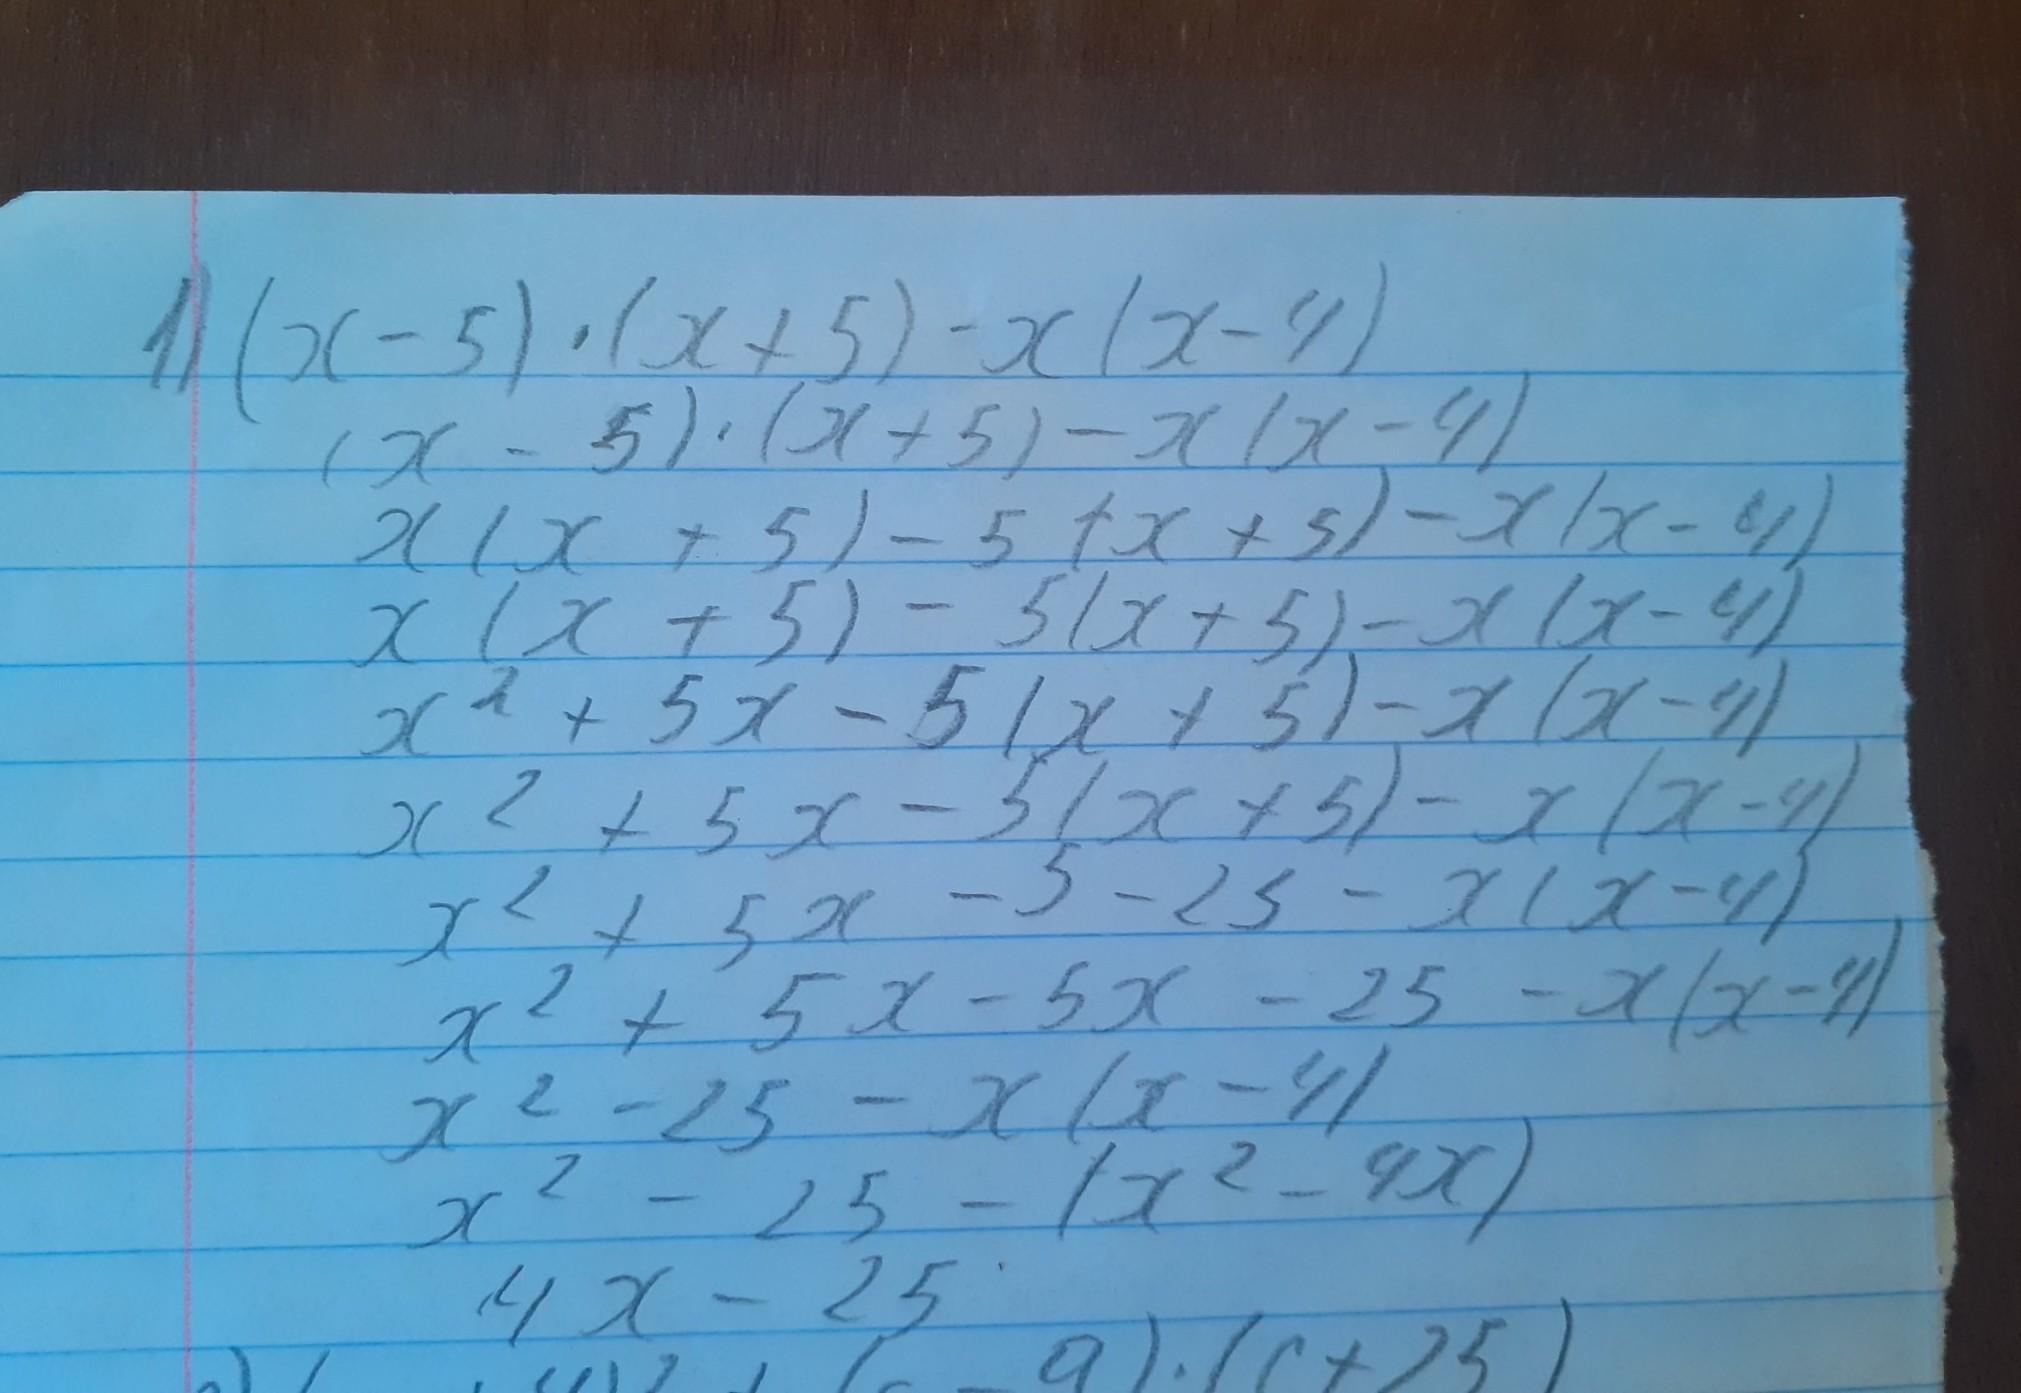 1) (x-5)·(x+5)-x(x-4)
(x - 5)·(x+5)-x(x-4)
x(x + 5)-5(x+5)-x(x-4)
x(x + 5) - 5(x+5)-x(x-4)
x² + 5x - 5(x+5)-x(x-4)
x² + 5x - 5(x+5)- x(x-4)
x² + 5x - 5 - 25 - x(x-4)
x² + 5x - 5x - 25 - x(x-4)
x² - 25 - x(x-4)
x² - 25 - (x² - 4x)
4x - 25